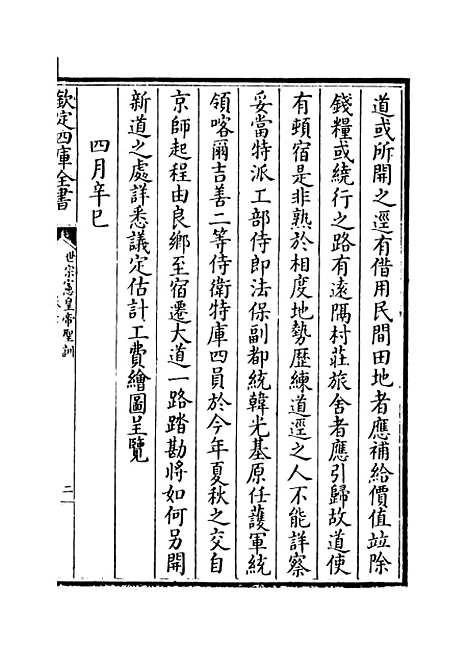 道或所開之逕有借用民間田地者應補給價值竝除
錢糧或繞行之路有遠隔村莊旅舍者應引歸故道使
有頓宿是非熟於相度地勢歷練道逕之人不能詳察
妥當特派工部侍郎法保副都統韓光基原任護軍統
領喀爾吉善二等侍衛特庫四員於今年夏秋之交自
京師起程由良鄉至宿遷大道一路踏勘將如何另開
新道之處詳悉議定估計工費繪圖呈覽
四月辛巳
欽定四庫全書
世宗憲皇帝聖訓
二